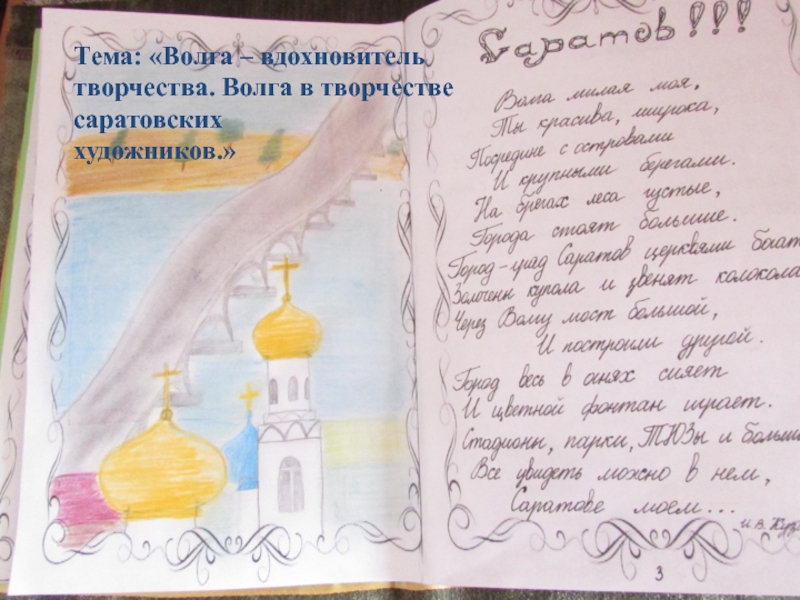 Тема: «Волга – вдохновитель
творчества. Волга в творчестве
саратовских
художников.»
Саратов!!!
Волга милая моя,
Ты красива, широка,
Посредине с островами
И крупными берегами.
На брегах леса густые,
Города стоят большие.
Город-град Саратов церквями богат
Золочены купола и звенят колокола
Через Волгу мост большой,
И построили другой.
Город весь в огнях сияет
И цветной фонтан играет.
Стадионы, парки, ТЮЗы и
Все увидеть можно в нем,
Саратове моем...
3